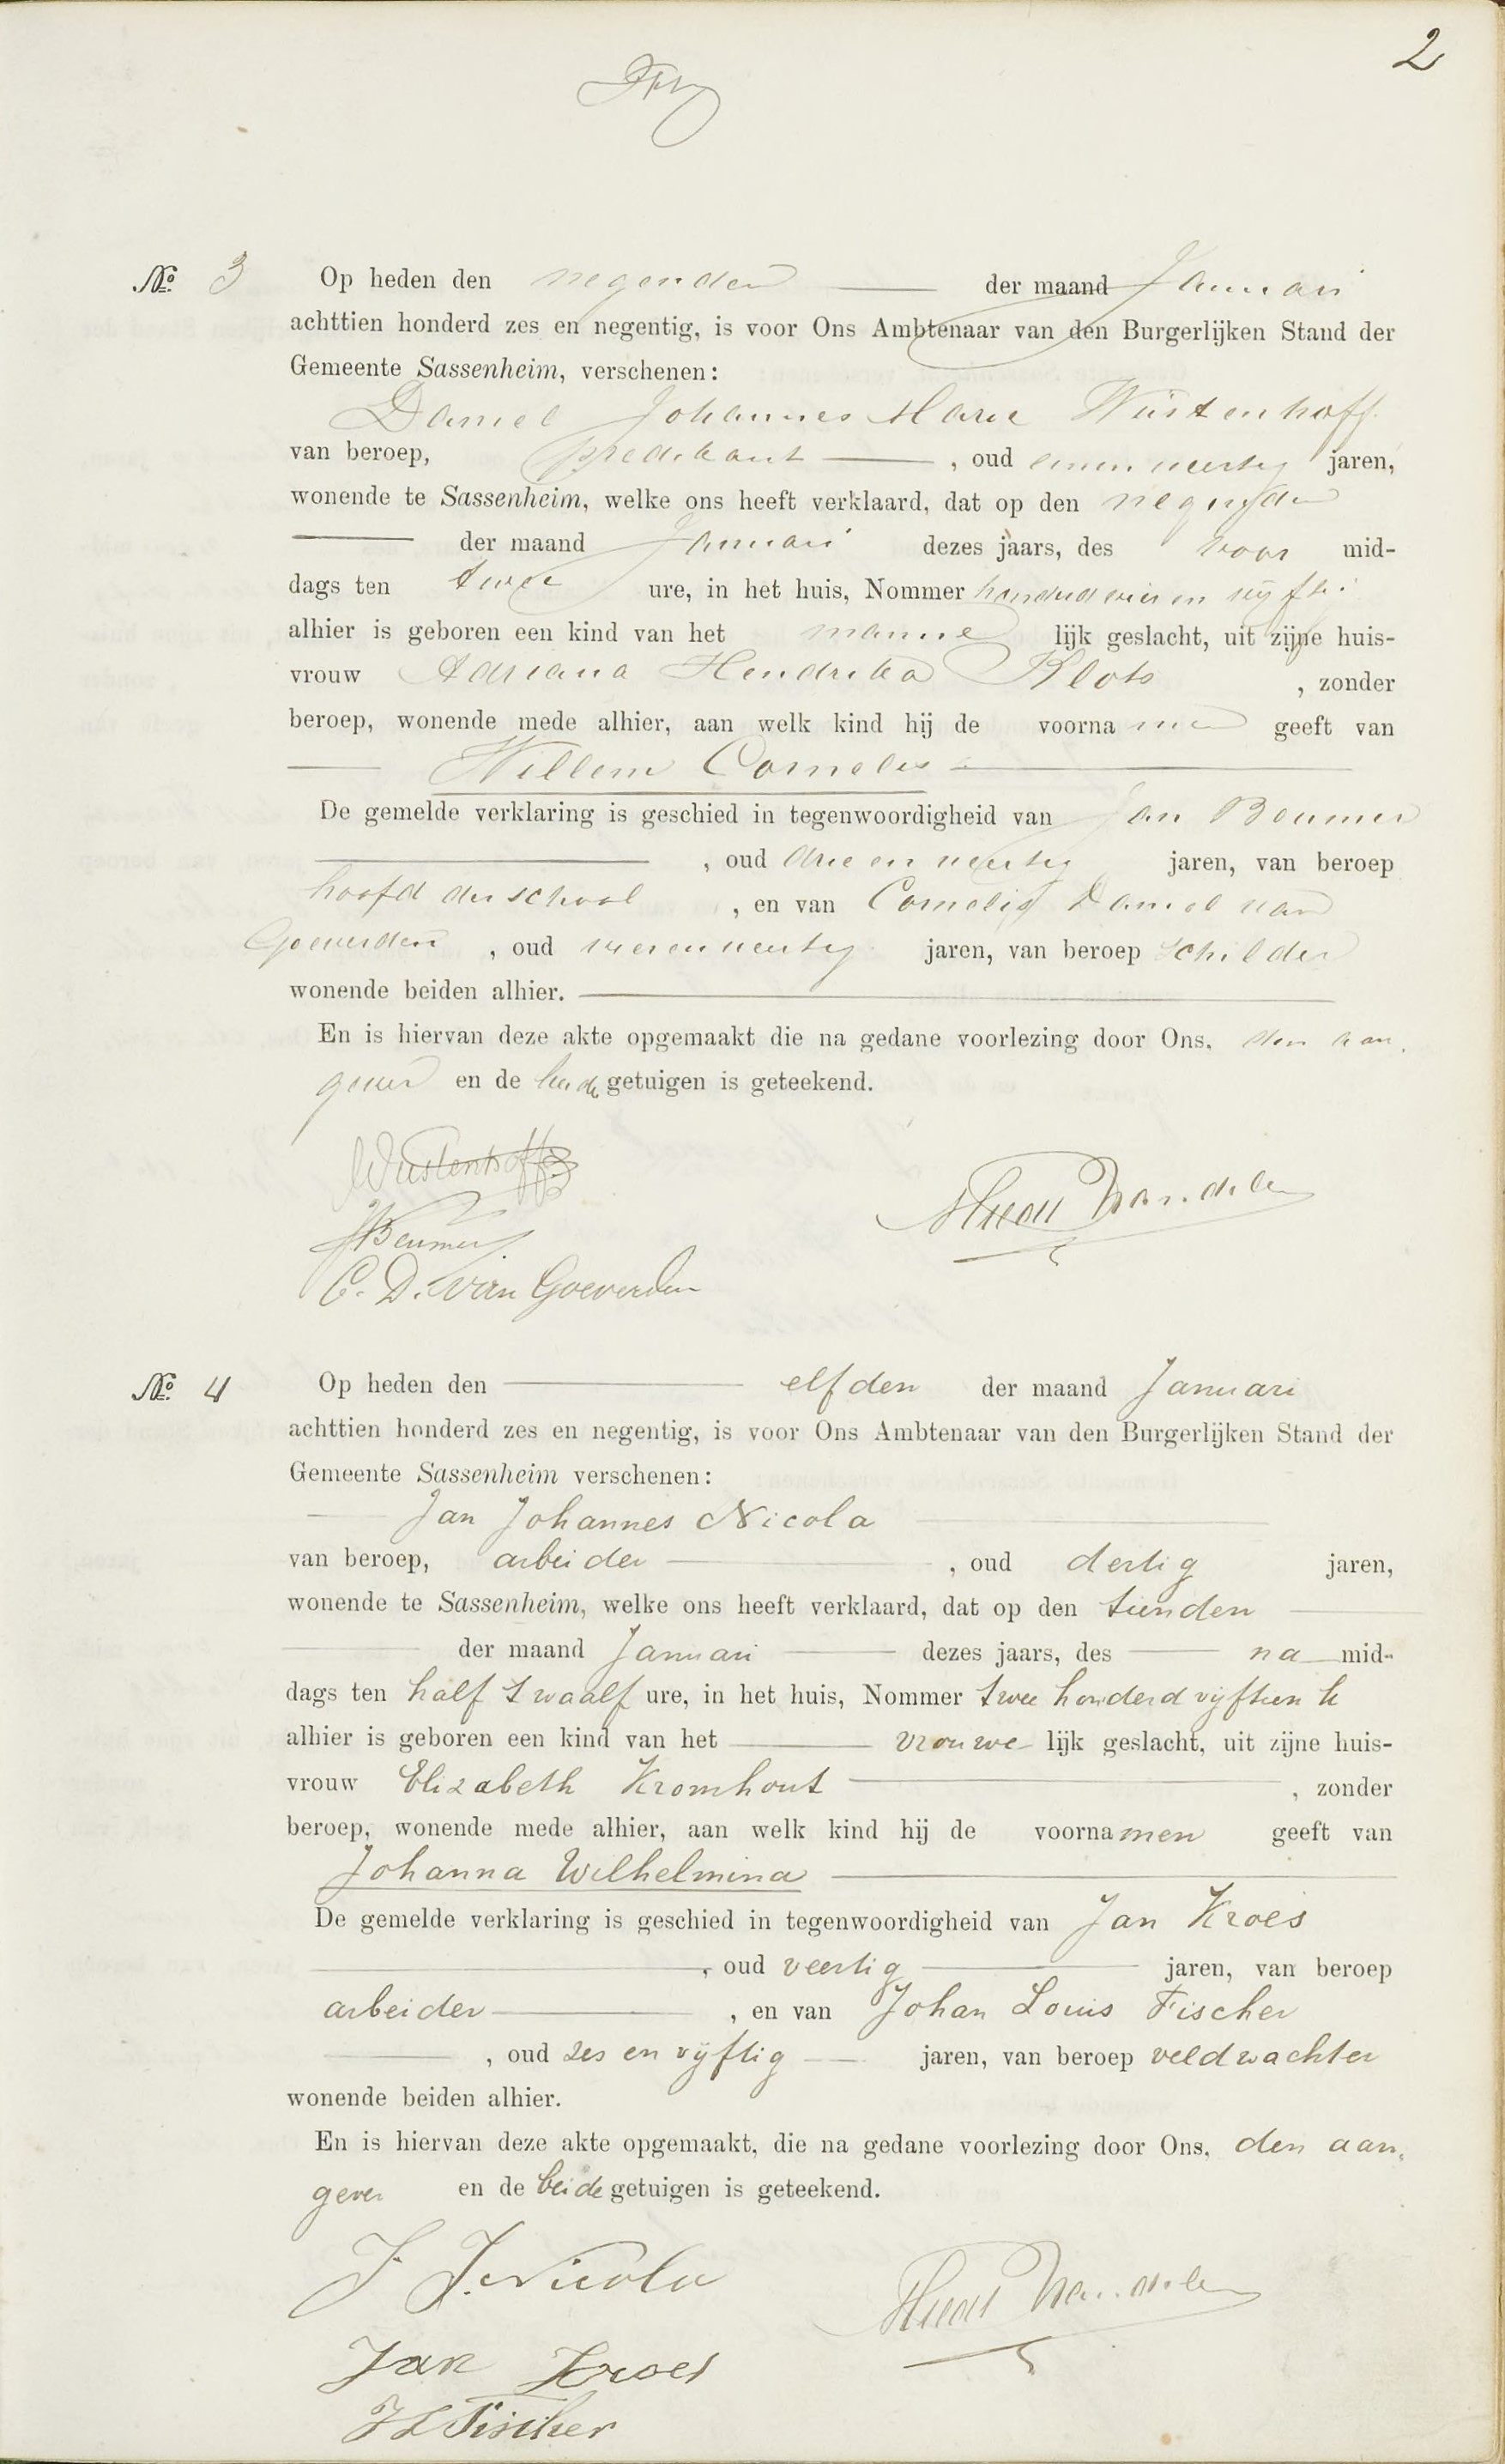 2
No. 3 Op heden den negenden der maand Januari
achttien honderd zes en negentig, is voor Ons Ambtenaar van den Burgerlijken Stand der
Gemeente Sassenheim, verschenen:
Daniel Johannes Marie Wüstenhoff
van beroep, predikant, oud eenen veertig jaren,
wonende te Sassenheim, welke ons heeft verklaard, dat op den negenden
der maand Januari dezes jaars, des voor mid-
dags ten twee ure, in het huis, Nommer honderd vier en vijftig
alhier is geboren een kind van het manne lijk geslacht, uit zijne huis-
vrouw Adriana Hendrika Klots, zonder
beroep, wonende mede alhier, aan welk kind hij de voorna men geeft van
Willem Cornelis
De gemelde verklaring is geschied in tegenwoordigheid van Jan Beumer
, oud drie en veertig jaren, van beroep
hoofd der school, en van Cornelis Daniel van
Goeverden, oud vierenveertig jaren, van beroep schilder
wonende beiden alhier.
En is hiervan deze akte opgemaakt die na gedane voorlezing door Ons, den aan-
gever en de beide getuigen is geteekend.
Wüstenhoff
JBeumer
C. D. van Goeverden
No. 4 Op heden den elfden der maand Januari
achttien honderd zes en negentig, is voor Ons Ambtenaar van den Burgerlijken Stand der
Gemeente Sassenheim verschenen:
Jan Johannes Nicola
van beroep, arbeider, oud dertig jaren,
wonende te Sassenheim, welke ons heeft verklaard, dat op den tienden
der maand Januari dezes jaars, des na mid-
dags ten half twaalf ure, in het huis, Nommer twee honderd vijftien b
alhier is geboren een kind van het vrouwe lijk geslacht, uit zijne huis-
vrouw Elizabeth Kromhout, zonder
beroep, wonende mede alhier, aan welk kind hij de voornamen geeft van
Johanna Wilhelmina
De gemelde verklaring is geschied in tegenwoordigheid van Jan Kroes
, oud veertig jaren, van beroep
arbeider, en van Johan Louis Fischer
, oud zes en vijftig jaren, van beroep veldwachter
wonende beiden alhier.
En is hiervan deze akte opgemaakt, die na gedane voorlezing door Ons, den aan-
gever en de beide getuigen is geteekend.
J. J. Nicola
Jan Kroes
JL Fischer